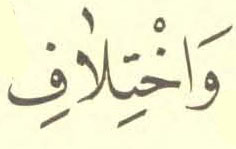 وَاخْتِلَافِ